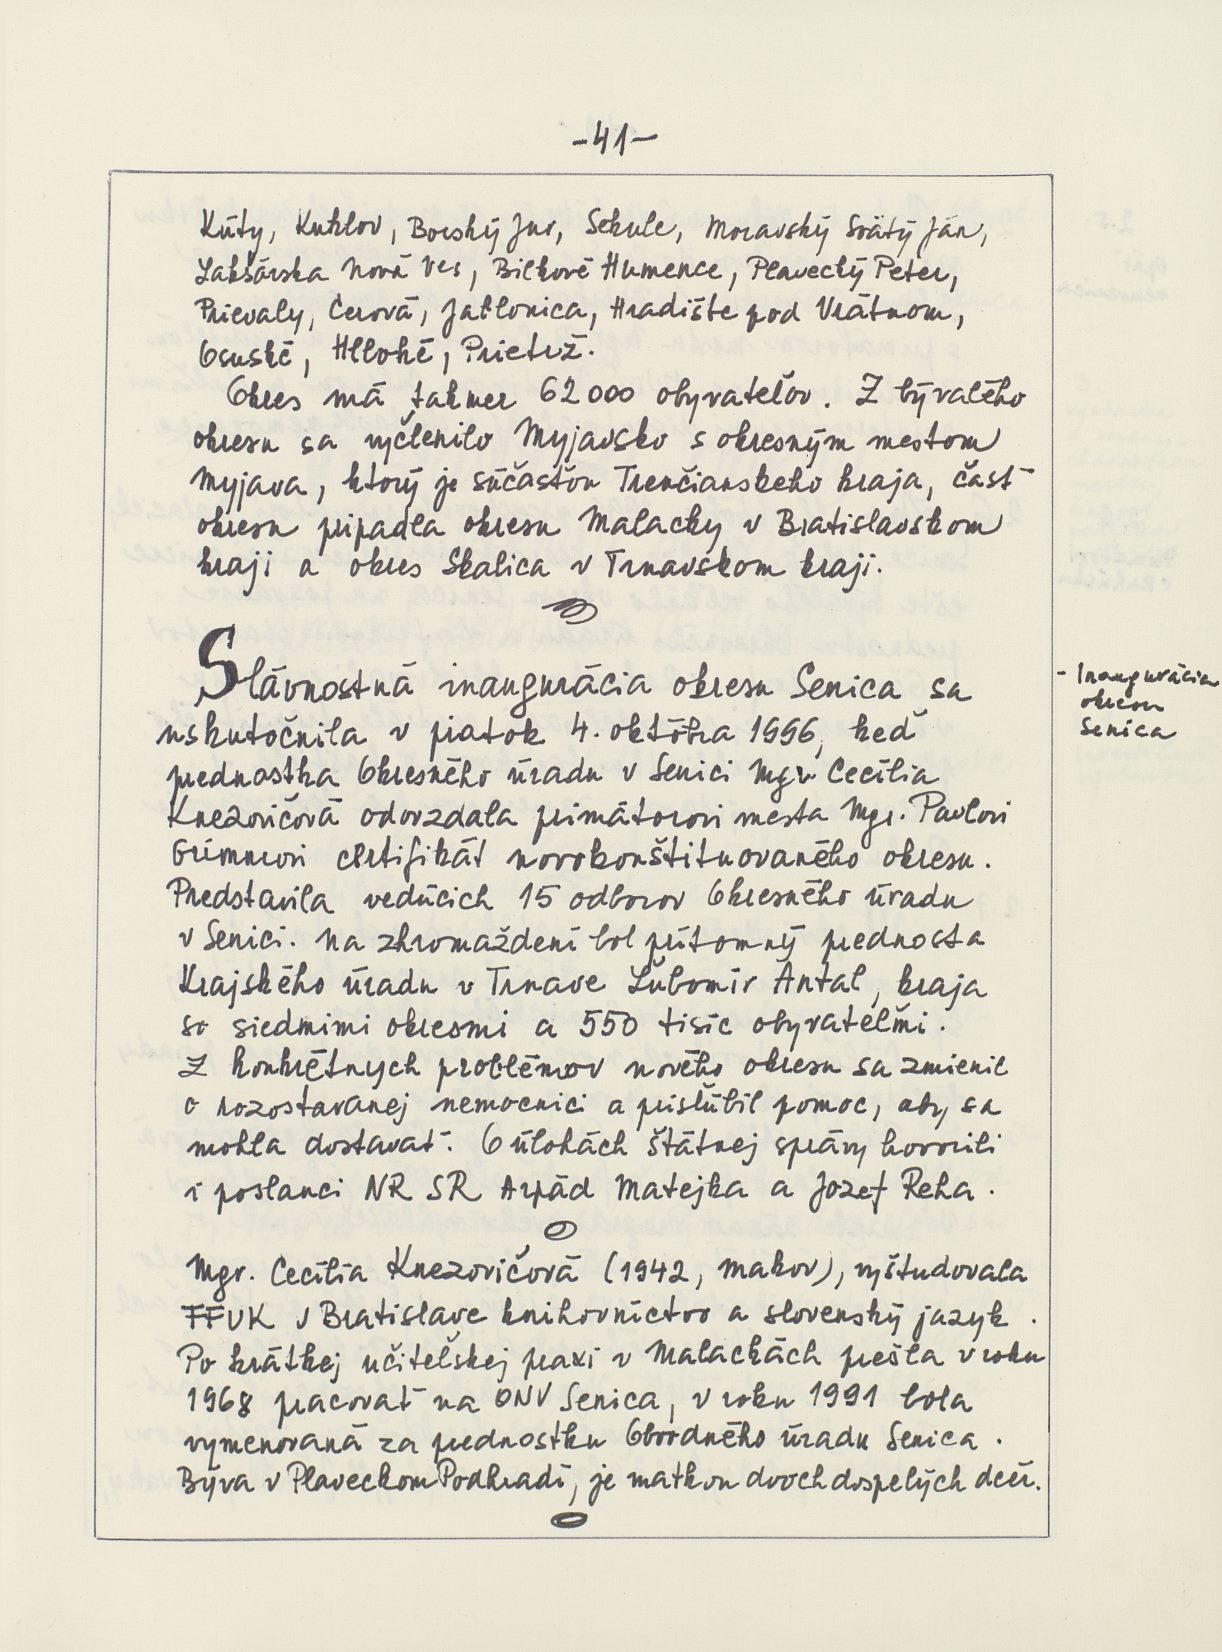 -41-
Kúty, Kuklov, Borský Jur, Sekule, Moravský Svätý Ján,
Lakšárska Nová Ves, Bílkové Humence, Plavecký Peter,
Prievaly, Cerová, Jablonica, Hradište pod Vrátnom,
Osuské, Hlboké, Prietrž.
Okres má takmer 62 000 obyvateľov. Z bývalého
okresu sa vyčlenilo Myjavsko s okresným mestom
Myjava, ktorý je súčasťou Trenčianskeho kraja, časť
okresu pripadla okresu Malacky v Bratislavskom
kraji a okres Skalica v Trnavskom kraji.
Slávnostná inaugurácia okresu Senica sa
uskutočnila v piatok 4. októbra 1996, keď
prednostka Okresného úradu v Senici Mgr. Cecília
Knezovičová odovzdala primátorovi mesta Mgr. Pavlovi
Grimmovi certifikát novokonštituovaného okresu.
Predstavila vedúcich 15 odborov Okresného úradu
v Senici. Na zhromaždení bol prítomný prednosta
Krajského úradu v Trnave Ľubomír Antal, kraja
so siedmimi okresmi a 550 tisíc obyvateľmi.
Z konkrétnych problémov nového okresu sa zmienil
o rozostavanej nemocnici a prisľúbil pomoc, aby sa
mohla dostavať. O úlohách štátnej správy hovorili
i poslanci NR SR Arpád Matejka a Jozef Reha.
- Inaugurácia
okresu
Senica
Mgr. Cecília Knezovičová (1942, Makov), vyštudovala
FFUK v Bratislave knihovníctvo a slovenský jazyk.
Po krátkej učiteľskej praxi v Malackách prešla v roku
1968 pracovať na ONV Senica, v roku 1991 bola
vymenovaná za prednostku Obvodného úradu Senica.
Býva v Plaveckom Podhradí, je matkou dvoch dospelých dcér.